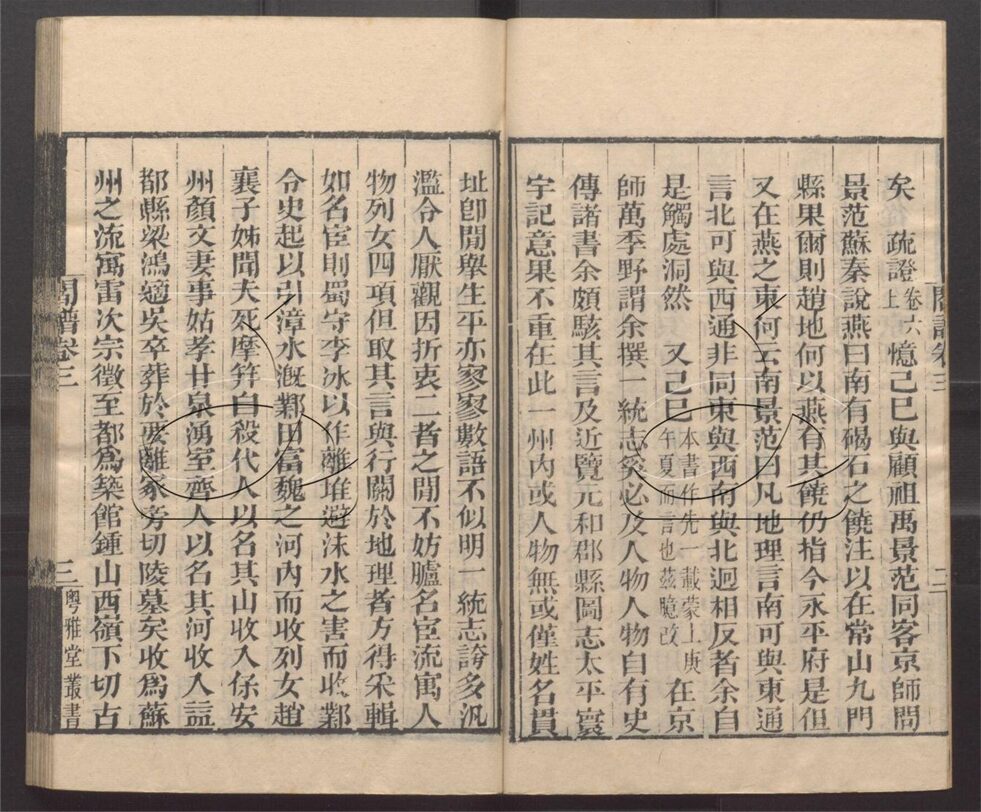 矣　疏證卷六上憶己巳與顧祖禹景范同客京師問
景范蘇秦說燕曰南有碣石之饒注以在常山九門
縣果爾則趙地何以燕有其饒仍指今永平府是但
又在燕之東何云南景范曰凡地理言南可與東通
言北可與西通非同東與西南與北迥相反者余自
是觸處洞然　又己巳本書作先一載蒙上庚午夏而言也茲臆改在京
師萬季野謂余撰一統志奚必及人物人物自有史
傳諸書余頗駭其言及近覽元和郡縣圖志太平寰
宇記意果不重在此一州內或人物無或僅姓名貫
址卽閒舉生平亦寥寥數語不似明一統志誇多汎
濫令人厭觀因折衷二者之閒不妨臚名宦流寓人
物列女四項但取其言與行關於地理者方得采輯
如名宦則蜀守李冰以作離堆避沫水之害而收鄴
令史起以引漳水漑鄴田富魏之河內而收列女趙
襄子姊聞夫死摩笄自殺代人以名其山收入保安
州顏文妻事姑孝甘泉湧室齊人以名其河收入益
都縣梁鴻適吳卒葬於要離冢旁切陵墓矣收爲蘇
州之流寓雷次宗徵至都爲築館鍾山西嶺下切古
閻譜卷三
三
粵雅堂叢書